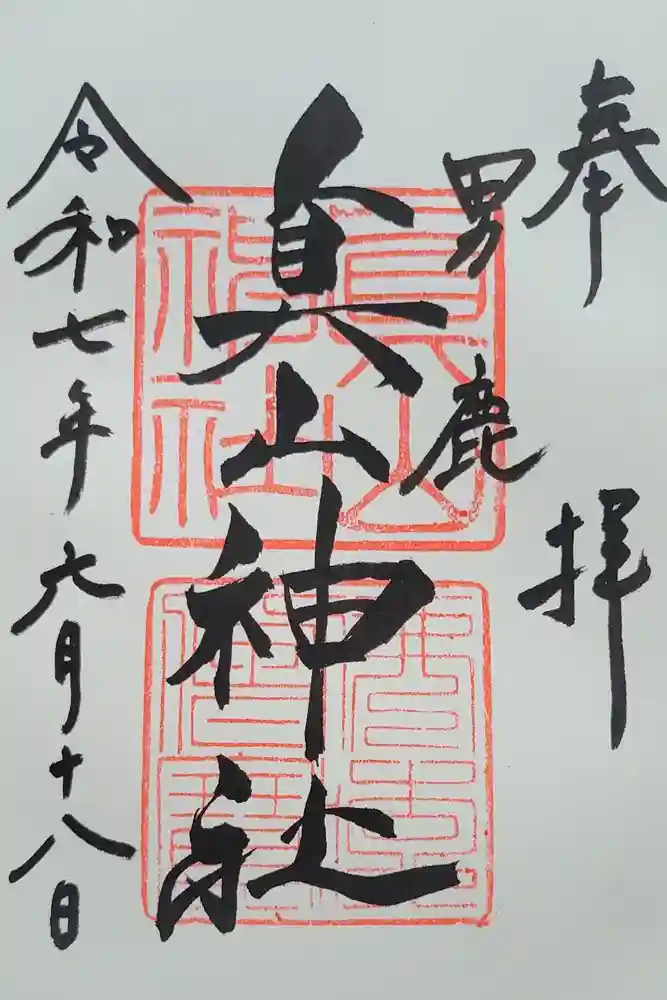 奉拝
男鹿
真山神社
令和七年六月十八日
真山神社